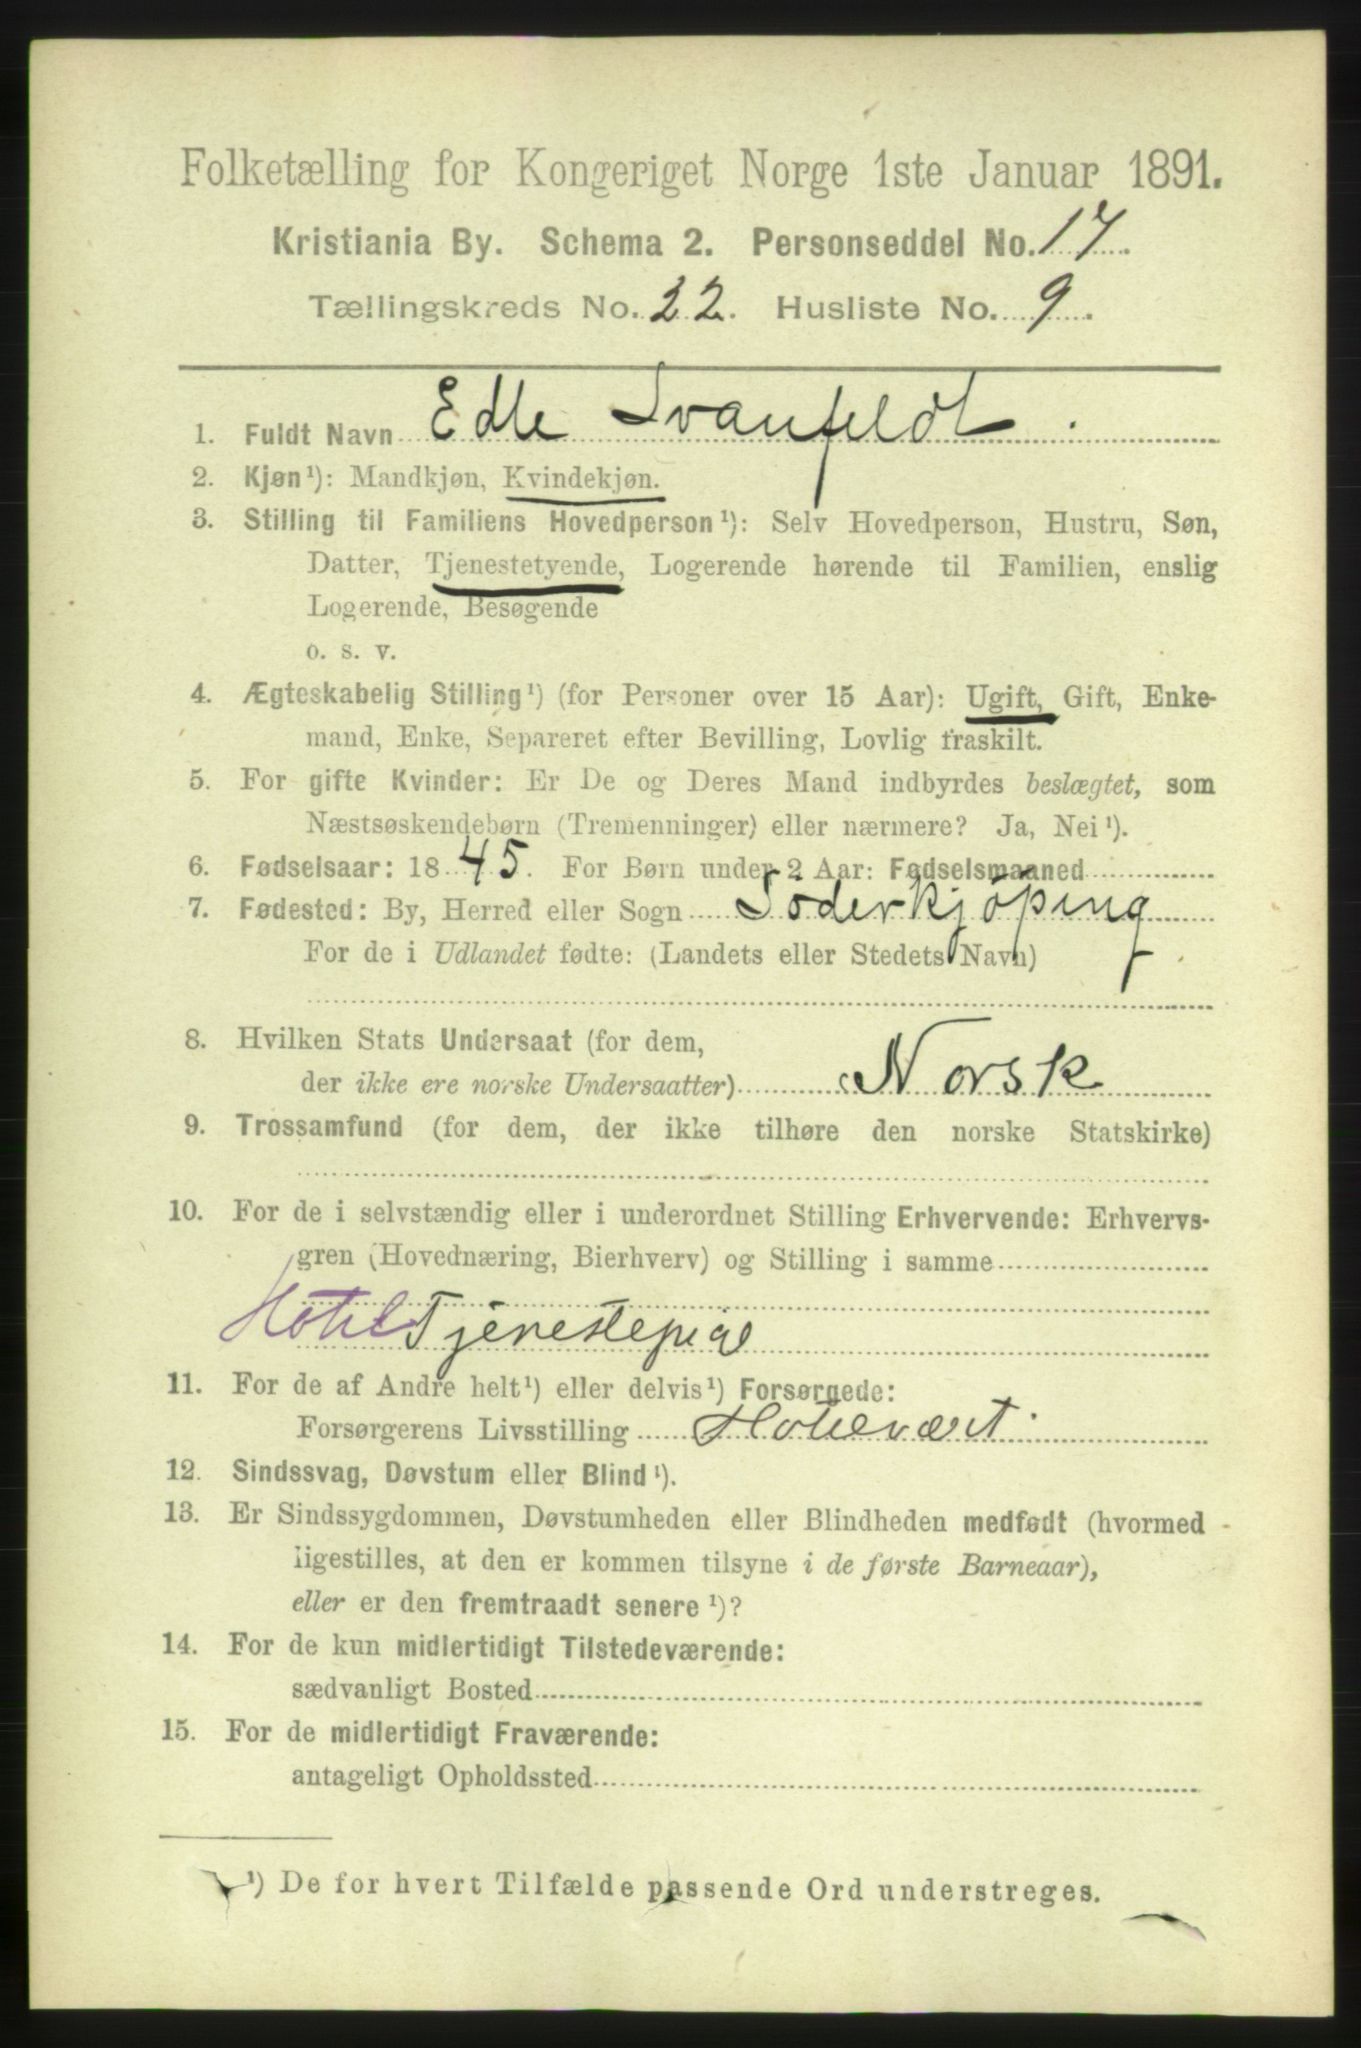 Folketælling for Kongeriget Norge 1ste Januar 1891.
Kristiania By. Schema 2. Personseddel No. 17.
Tællingskreds No. 22. Husliste No. 9.
1. Fuldt Navn Edle Svanfeldt.
2. Kjøn¹): Mandkjøn, Kvindekjøn.
3. Stilling til Familiens Hovedperson¹): Selv Hovedperson, Hustru, Søn,
Datter, Tjenestetyende, Logerende hørende til Familien, enslig
Logerende, Besøgende
o. s. v.
4. Ægteskabelig Stilling¹) (for Personer over 15 Aar): Ugift, Gift, Enke-
mand, Enke, Separeret efter Bevilling, Lovlig fraskilt.
5. For gifte Kvinder: Er De og Deres Mand indbyrdes beslægtet, som
Næstsøskendebørn (Tremenninger) eller nærmere? Ja, Nei¹).
6. Fødselsaar: 1845. For Børn under 2 Aar: Fødselsmaaned
7. Fødested: By, Herred eller Sogn Söderkjöping
For de i Udlandet fødte: (Landets eller Stedets Navn)
8. Hvilken Stats Undersaat (for dem,
der ikke ere norske Undersaatter) Norsk
9. Trossamfund (for dem, der ikke tilhøre den norske Statskirke)
10. For de i selvstændig eller i underordnet Stilling Erhvervende: Erhvervs-
gren (Hovednæring, Bierhverv) og Stilling i samme
Hotel Tjenestepige
11. For de af Andre helt¹) eller delvis¹) Forsørgede:
Forsørgerens Livsstilling Hotelvært.
12. Sindssvag, Døvstum eller Blind¹).
13. Er Sindssygdommen, Døvstumheden eller Blindheden medfødt (hvormed
ligestilles, at den er kommen tilsyne i de første Barneaar),
eller er den fremtraadt senere¹)?
14. For de kun midlertidigt Tilstedeværende:
sædvanligt Bosted
15. For de midlertidigt Fraværende:
antageligt Opholdssted
¹) De for hvert Tilfælde passende Ord understreges.